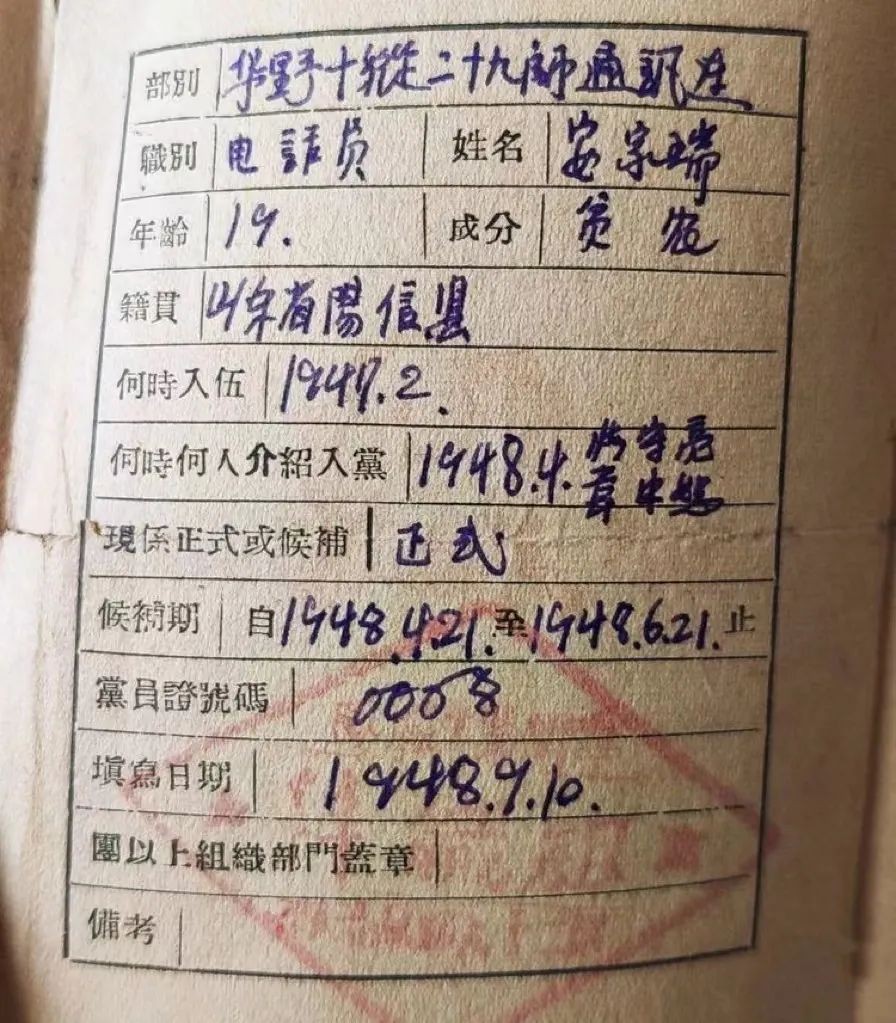 部別 华野十縱二十九师通訊连
職別 电話员 姓名 安宗瑞
年齡 19. 成分 贫农
籍貫 山东省陽信县
何時入伍 1947.2.
何時何人介紹入黨 1948.4.
現係正式或候補 正式
候補期 自1948.4.21.至1948.6.21.止
黨員證號碼 0008
填寫日期 1948.9.10.
團以上組織部門蓋章
備考